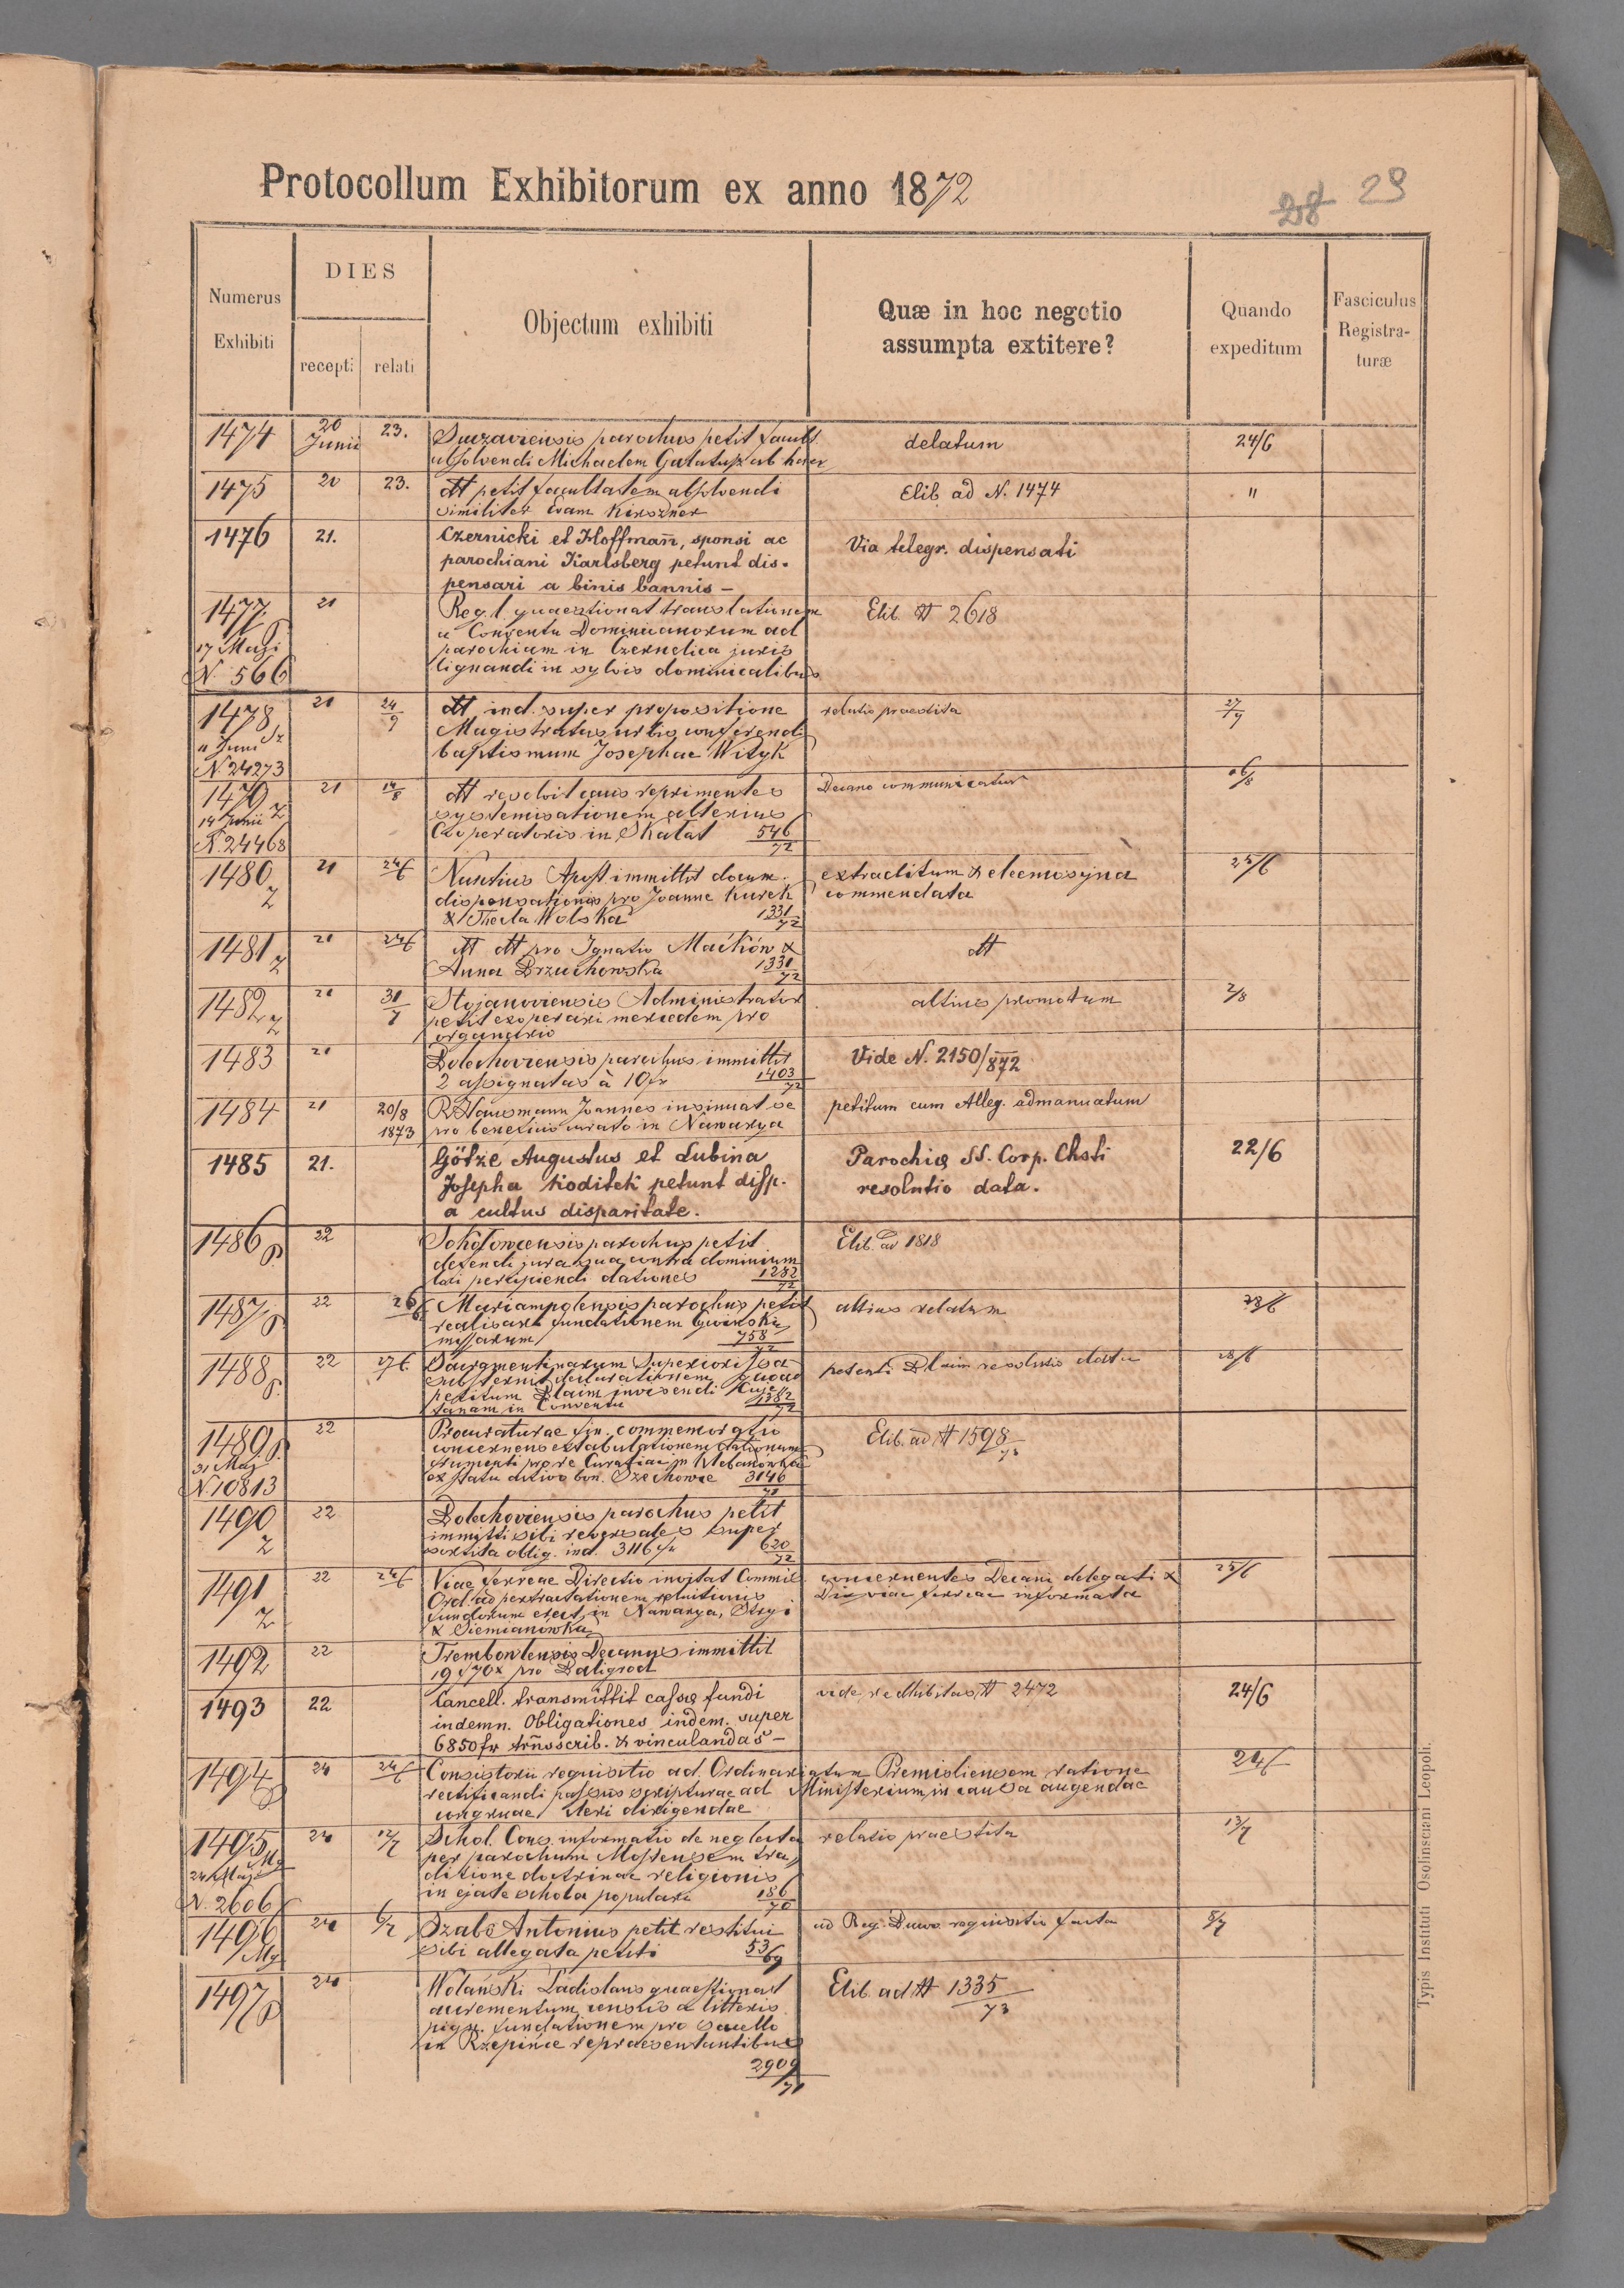 Protocollum Exhibitorum ex anno 1872
28 29
Numerus Exhibiti
DIES
recepti relati
Objectum exhibiti
Quæ in hoc negotio assumpta extitere?
Quando expeditum
Fasciculus Registra-turæ
1474 20 Junii 23. Suczaviensis parochus petit facult. delatum 24/6
absolvendi Michaelem ab haer
1475 20 23. dtt petit facultatem absolvendi Elib ad N. 1474 "
similiter Evam Kirszner
1476 21. Czernicki et Hoffmañ, sponsi ac Via telegr. dispensati
parochiani Karlsberg petunt dis-
pensari a binis bannis –
1477 21 Reg. l. quaestionat translationem Elib. N 2618
17 Maji a Conventu Dominicanorum ad
parochiam in Czernelica juris
N. 566 lignandi in sylvis dominicalibus
1478 21 24/9 dtt ind. super propositione relatio praestita 27/9
11 Juni Magistratus urbis conferendi
N. 24273 baptismum Josephae Wityk
1479 z 21 14/8 dtt resolvit eaus reprimentes Decano communicatur 16/8
14 Junii systemisationem alterius
N. 24468 Cooperatoris in Skałat 546/72
1480 z 21 24/6 Nuntius Apost. immittit docum. extraditum & eleemosyna 25/6
dispensationis pro Joanne Kurek commendata
& Thecla Wolska 1331/72
1481 z 21 24/6 dtt dtt pro Ignatio Maćków & dtt
Anna Brzuchowska 1330/72
1482 z 21 31/7 Stojanoviensis Administrator altius promotum 2/8
petit exoperari mercedem pro
organario
1483 21 Bolechoviensis parochus immittit Vide N. 2150/872
2 assignatas à 10 fr 1403/72
1484 21 20/8 1873 R. Hausmann Joannes insinuat se petitum cum Alleg. admanuatum
pro beneficio curato in Nawarya
1485 21. Götze Augustus et Lubina Parochiæ SS. Corp. Chsti 22/6
Josepha Koditek petunt disp. resolutio data.
a cultus disparitate.
1486 p. 22 Sokołowcensis parochus petit Elib. ad 1818
defendi jura sua contra dominium
loci percipiendi dationes 1282/72
1487 p. 22 26/6 Mariampolensis parochus petit altius relatum 28/6
realisari fundationem
missarum 758/72
1488 p. 22 27/6 Sacramentinarum Superiorissa petenti Blaim resolutio data 28/6
substernit declarationem quoad
petitum Blaim invisendi
in Conventu 1382/72
1489 p. 22 Procuraturae fin. commemoratio Elib. ad N 1598/73
31 Maj concernens extabulationem dationum
frumenti pro re Curatiae in Klebanówka
N. 10813 ex statu activo bon. 3146/71
1490 z 22 Bolechoviensis parochus petit
immitti sibi reversales super
sortita oblig. ind. 3116 fr 620/72
1491 z 22 24/6 Viae ferreae Directio invitat Commis. concernentes Decani delegati & 25/6
Ord. ad pertractationem reluitionis Dir. viae ferreae informata
fundorum eccl. in Nawarya, Stryj
& Siemianówka
1492 22 Trembowlensis Decanus immittit
19 f 70 x pro Baligrod
1493 22 Cancell. transmittit cassæ fundi vide N 2472 24/6
indemn. Obligationes indem. super
6850 fr trñscrib. & vinculandas –
1494 p 24 24/6 Consistorii requisitio ad Ordinariatum Premisliensem ratione 24/6
rectificandi passus scripturae ad Ministerium in causa augendae
congruae cleri dirigendae
1495 Mg 24 12/7 Schol. Cons. informatio de neglecta relatio praestita 13/7
24 Maji per parochum Mostensem tra-
ditione doctrinae religionis
N. 2606 in ejate schola populari 186/70
1496 Mg 24 6/7 Szabo Antonius petit restitui ad Reg. Duno. requisitio facta 8/7
sibi allegata petiti 53/69
1497 p 24 Wolański Ladislaus quaestionat Elib. ad N 1335/73
accrementum census a litteris
pign. fundationem pro sacello
in Rzepińce repraesentantibus
2909/71
Typis Instituti Ossolinsciani Leopoli.